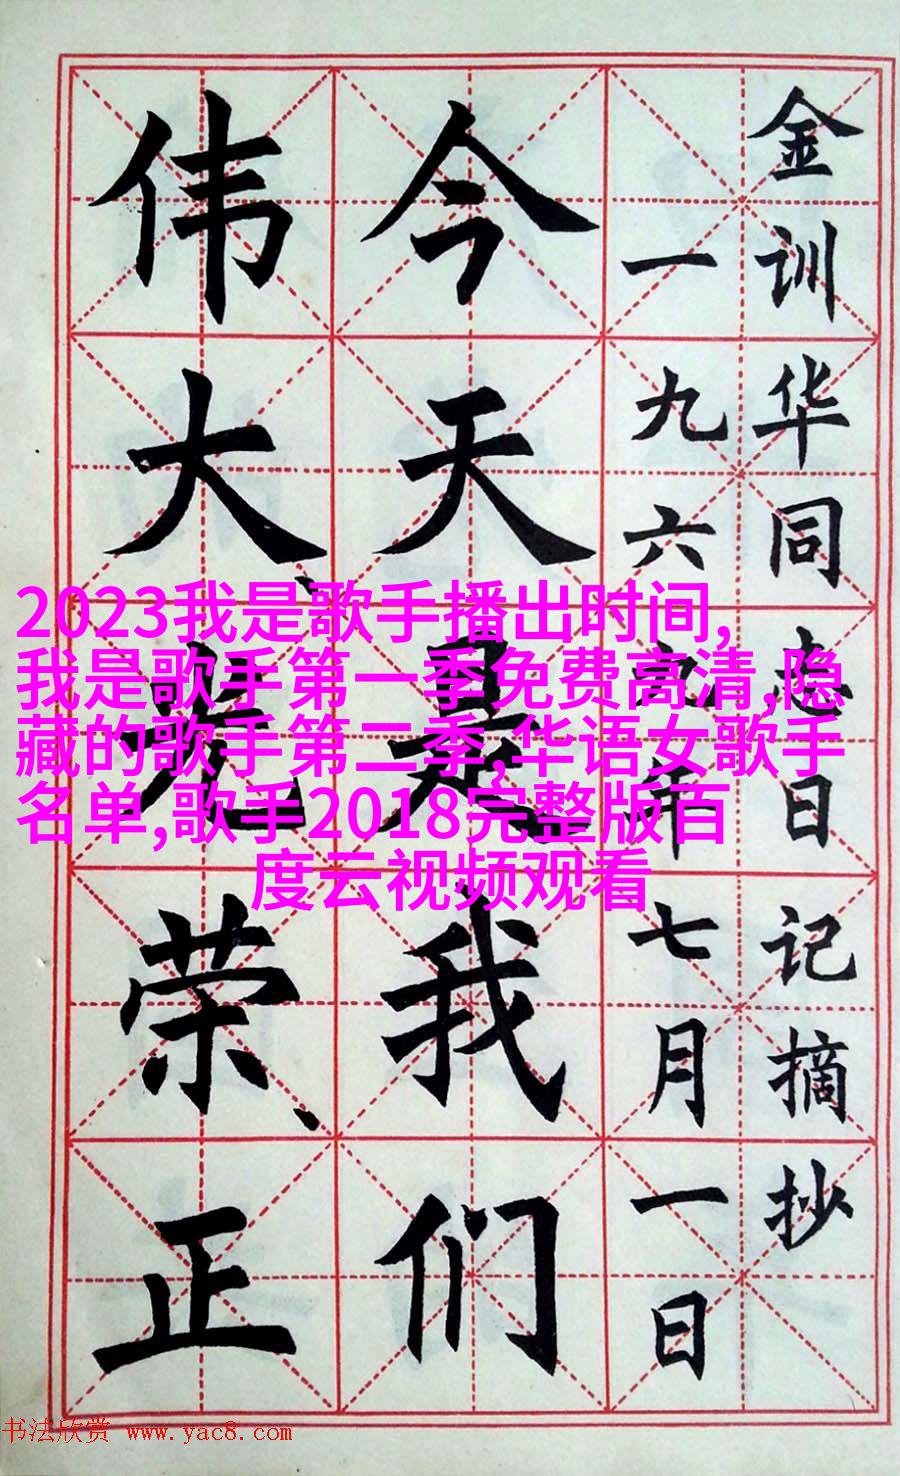 金训华同志日记摘抄
一九六 年七月一日
今天是我们
伟大、光荣、正
2023我是歌手播出时间,
我是歌手第一季免费高清,隐
藏的歌手第二季,华语女歌手
名单,歌手2018完整版百
度云视频观看
书法欣赏 www.yac8.com